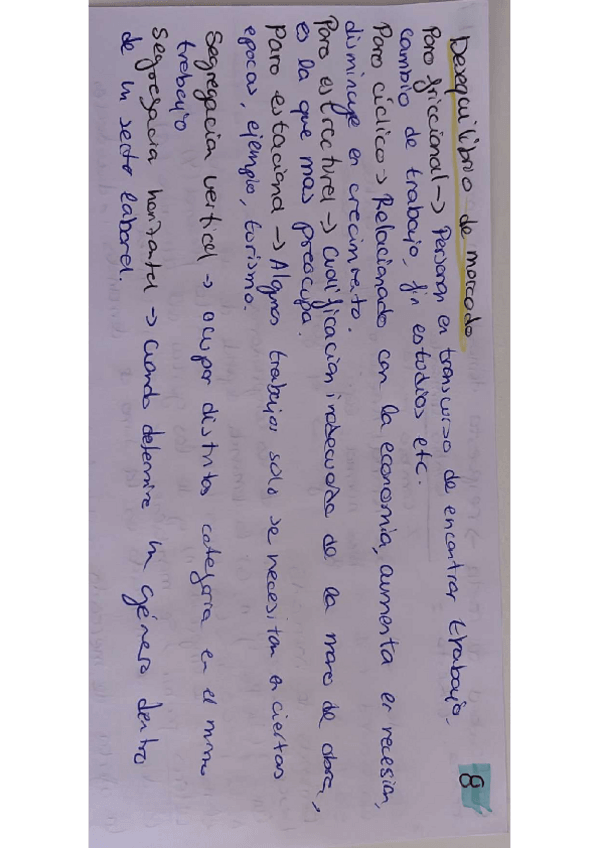 8
Desequilibrio de mercado
Paro friccional -> Personas en transcurso de encontrar trabajo,
cambio de trabajo, fin estudios etc.
Paro cíclico -> Relacionado con la economía, aumenta en recesión,
disminuye en crecimiento.
Paro estructural -> Cualificación inadecuada de la mano de obra,
es la que mas preocupa.
Paro estacional -> Algunos trabajos solo se necesitan en ciertas
epocas, ejemplo, turismo.
Segregación vertical -> ocupar distintas categoría en el mismo
trabajo
Segregación horizontal -> cuando determina un género dentro
de un sector laboral.